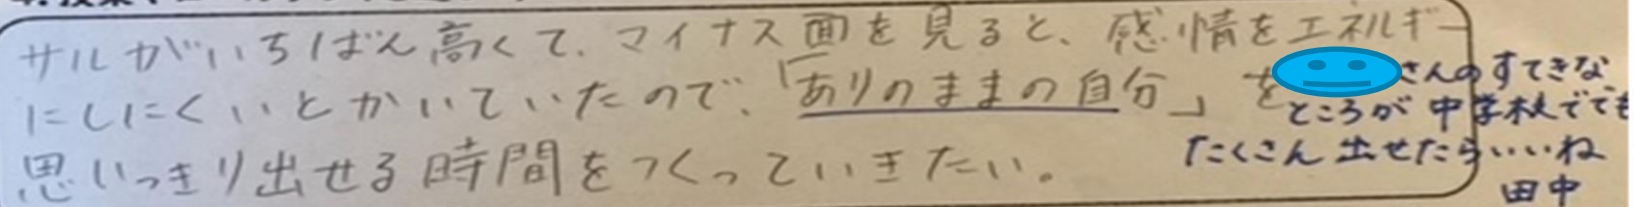 サルがいちばん高くて、マイナス面を見ると、感情をエネルギー
にしにくいとかいていたので、「ありのままの自分」を
思いっきり出せる時間をつくっていきたい。
さんのすてきな
ところが中学校ででも
たくさん出せたらいいね
田中